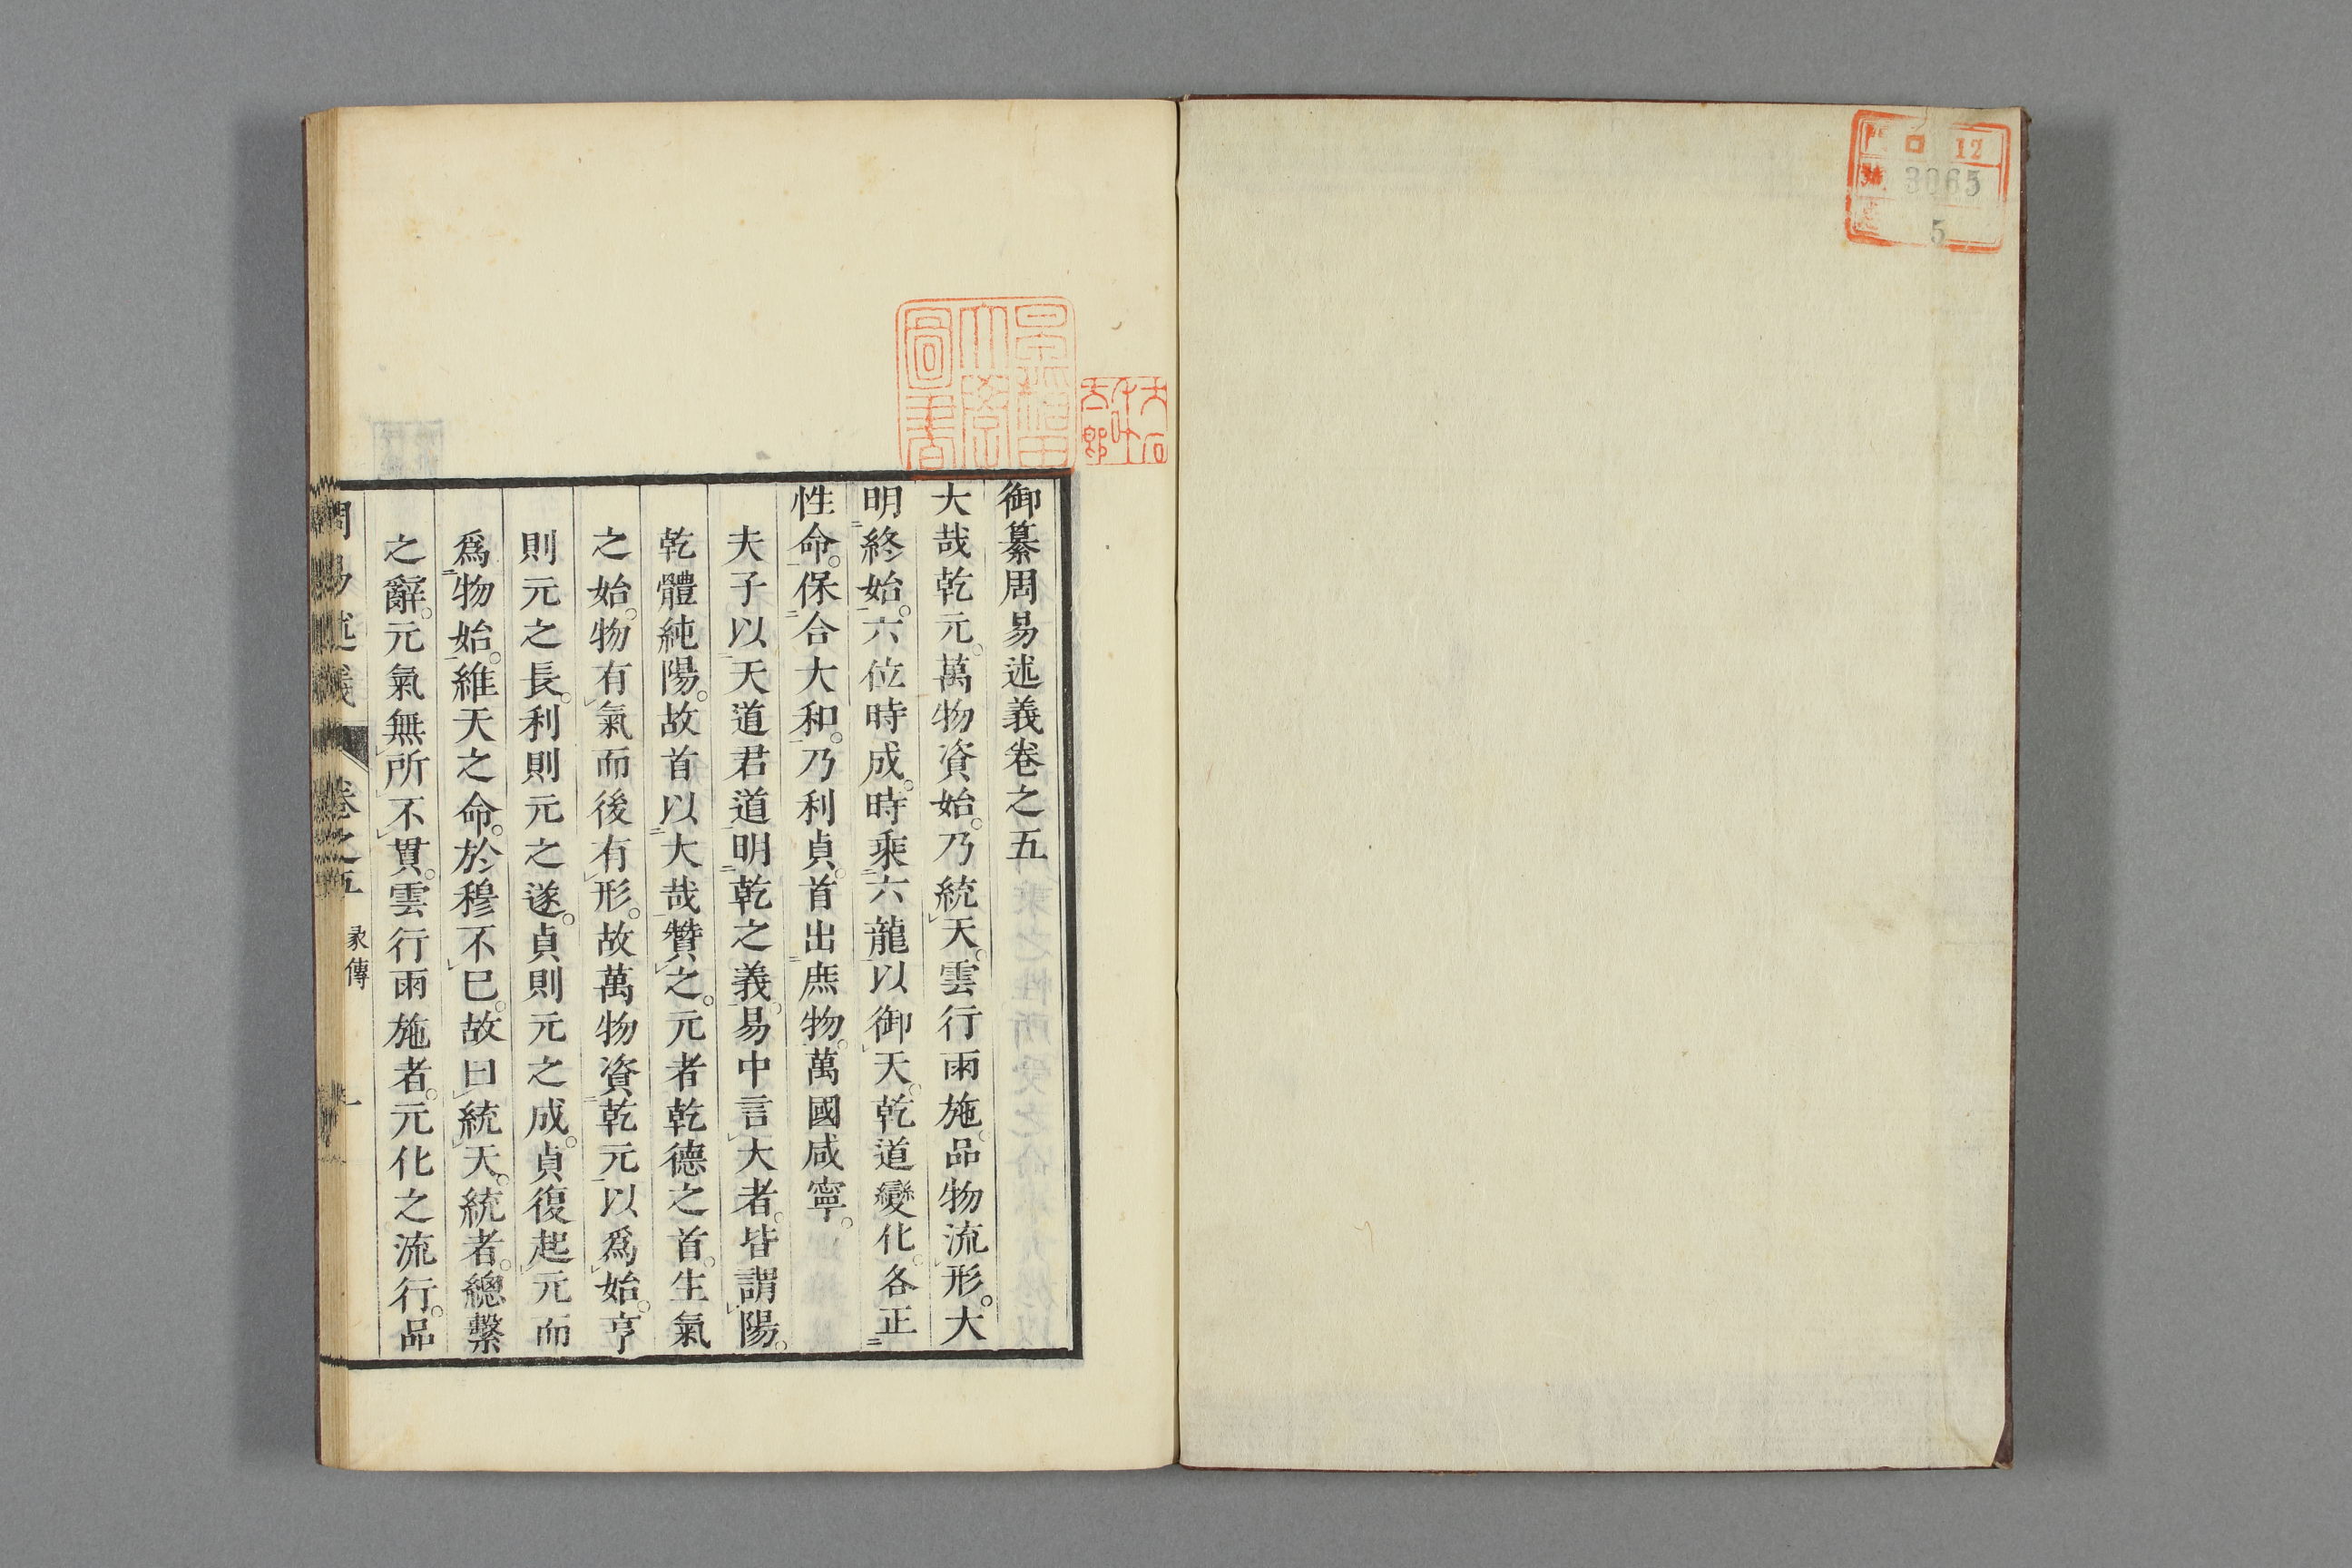 口 12
3065
5
御纂周易述義卷之五
大哉乾元。萬物資始。乃統天。雲行雨施。品物流形。大
明終始。六位時成。時乘六龍以御天。乾道變化。各正
性命。保合大和。乃利貞。首出庶物。萬國咸寧。
夫子以天道君道明乾之義。易中言大者。皆謂陽。
乾體純陽。故首以大哉贊之。元者乾德之首。生氣
之始。物有氣而後有形。故萬物資乾元以爲始。亨
則元之長。利則元之遂。貞則元之成。貞復起元而
爲物始。維天之命。於穆不已。故曰統天。統者。總繫
之辭。元氣無所不貫。雲行雨施者。元化之流行。品
周易述義 卷之五 彖傳 一
早稻田
大學
圖書